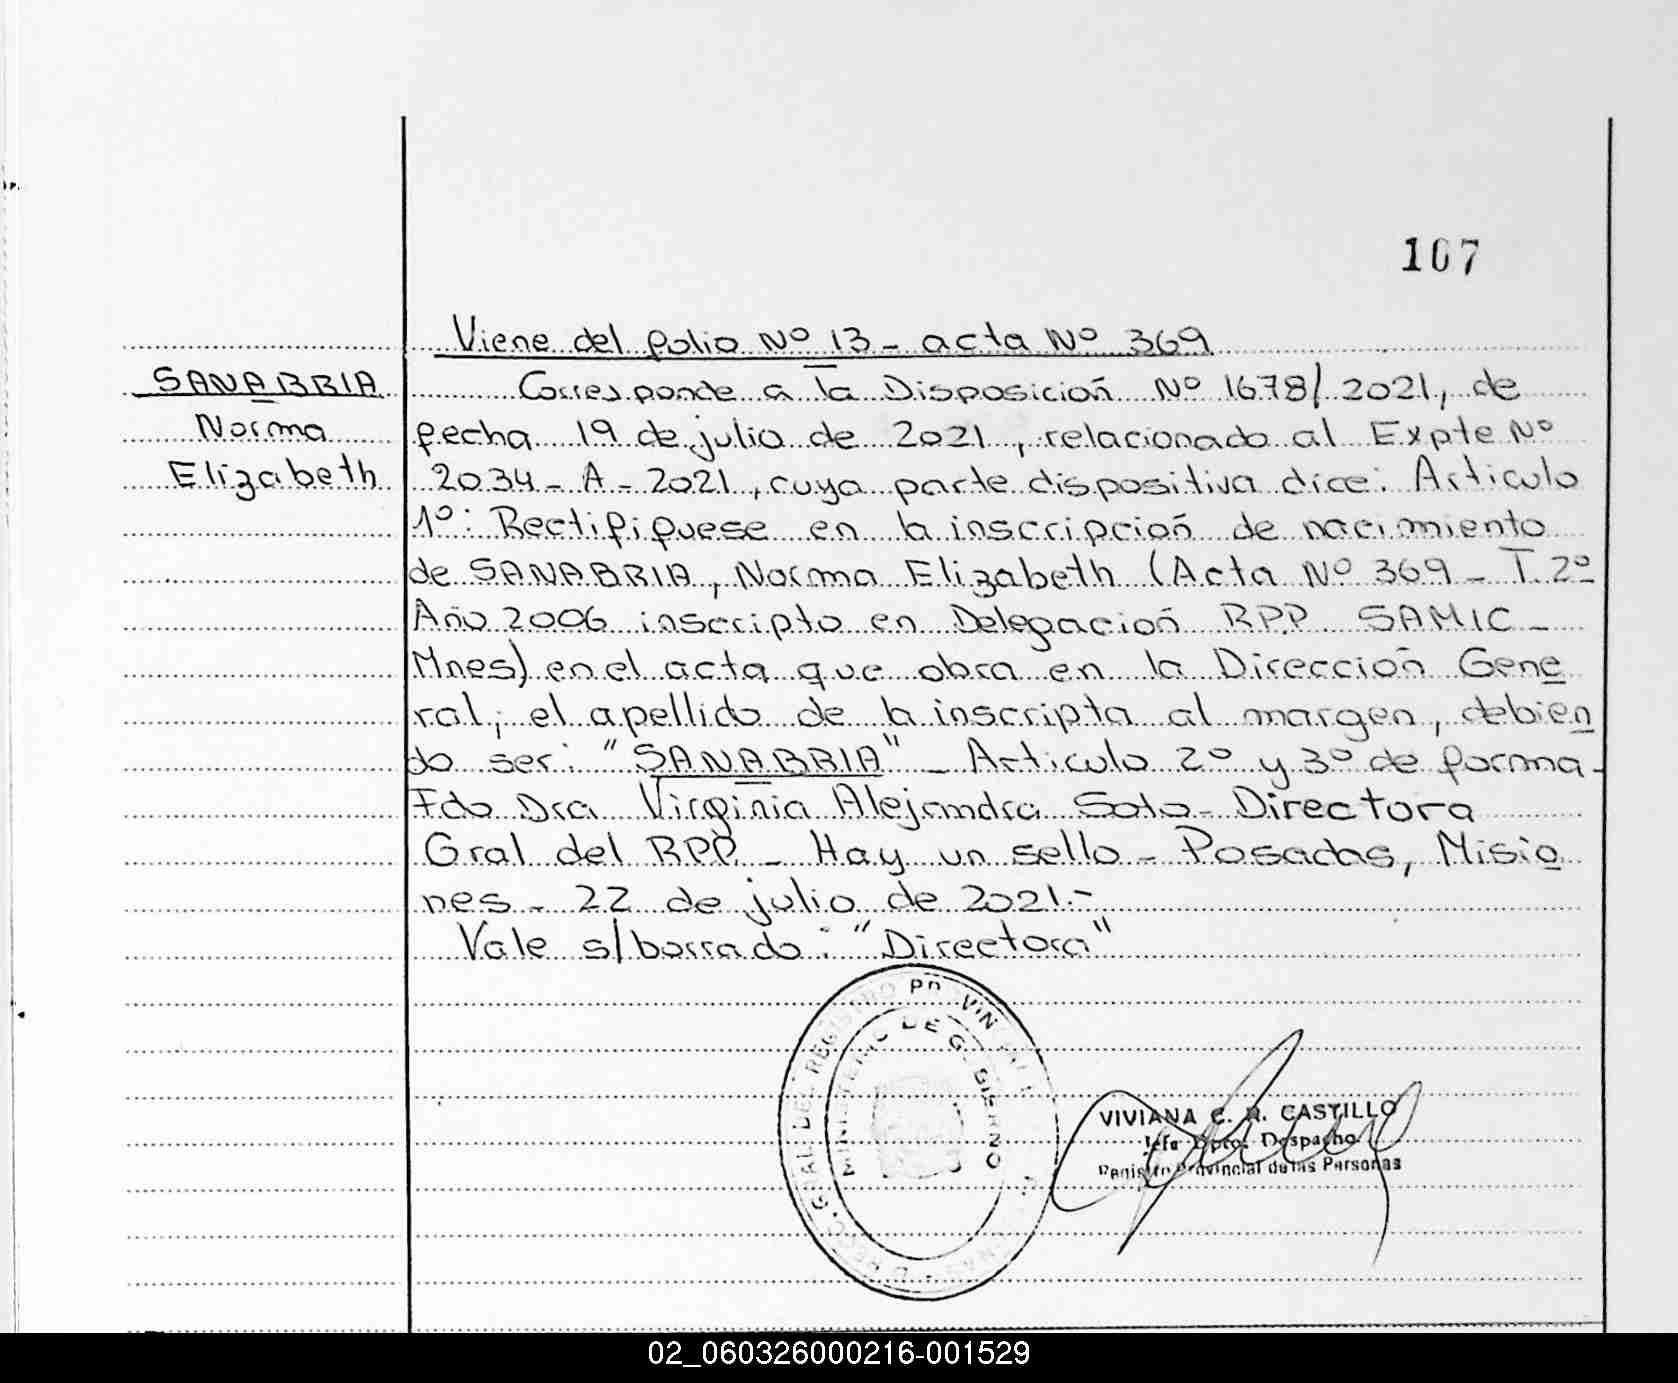 167
Viene del folio Nº 13 - acta Nº 369
SANABRIA
Norma
Elizabeth
Corresponde a la Disposición Nº 1678/2021, de
fecha 19 de julio de 2021, relacionado al Expte Nº
2034-A-2021, cuya parte dispositiva dice: Articulo
1º: Rectifiquese en la inscripción de nacimiento
de SANABRIA, Norma Elizabeth (Acta Nº 369 - T. 2º
Año 2006 inscripto en Delegación RPP SAMIC -
Mnes) en el acta que obra en la Dirección Gene
ral, el apellido de la inscripta al margen, debien
do ser: "SANABRIA" - Articulo 2º y 3º de forma -
Fdo Dra Virginia Alejandra Soto - Directora
Gral del RPP. - Hay un sello - Posadas, Misio
nes - 22 de julio de 2021.-
Vale s/borrado: "Directora"
GRAL. DEL REGISTRO PROVIN
MINISTERIO DE GOBIERNO
VIVIANA C. R. CASTILLO
Jefa Dpto. Despacho
Registro Provincial de las Personas
02_060326000216-001529